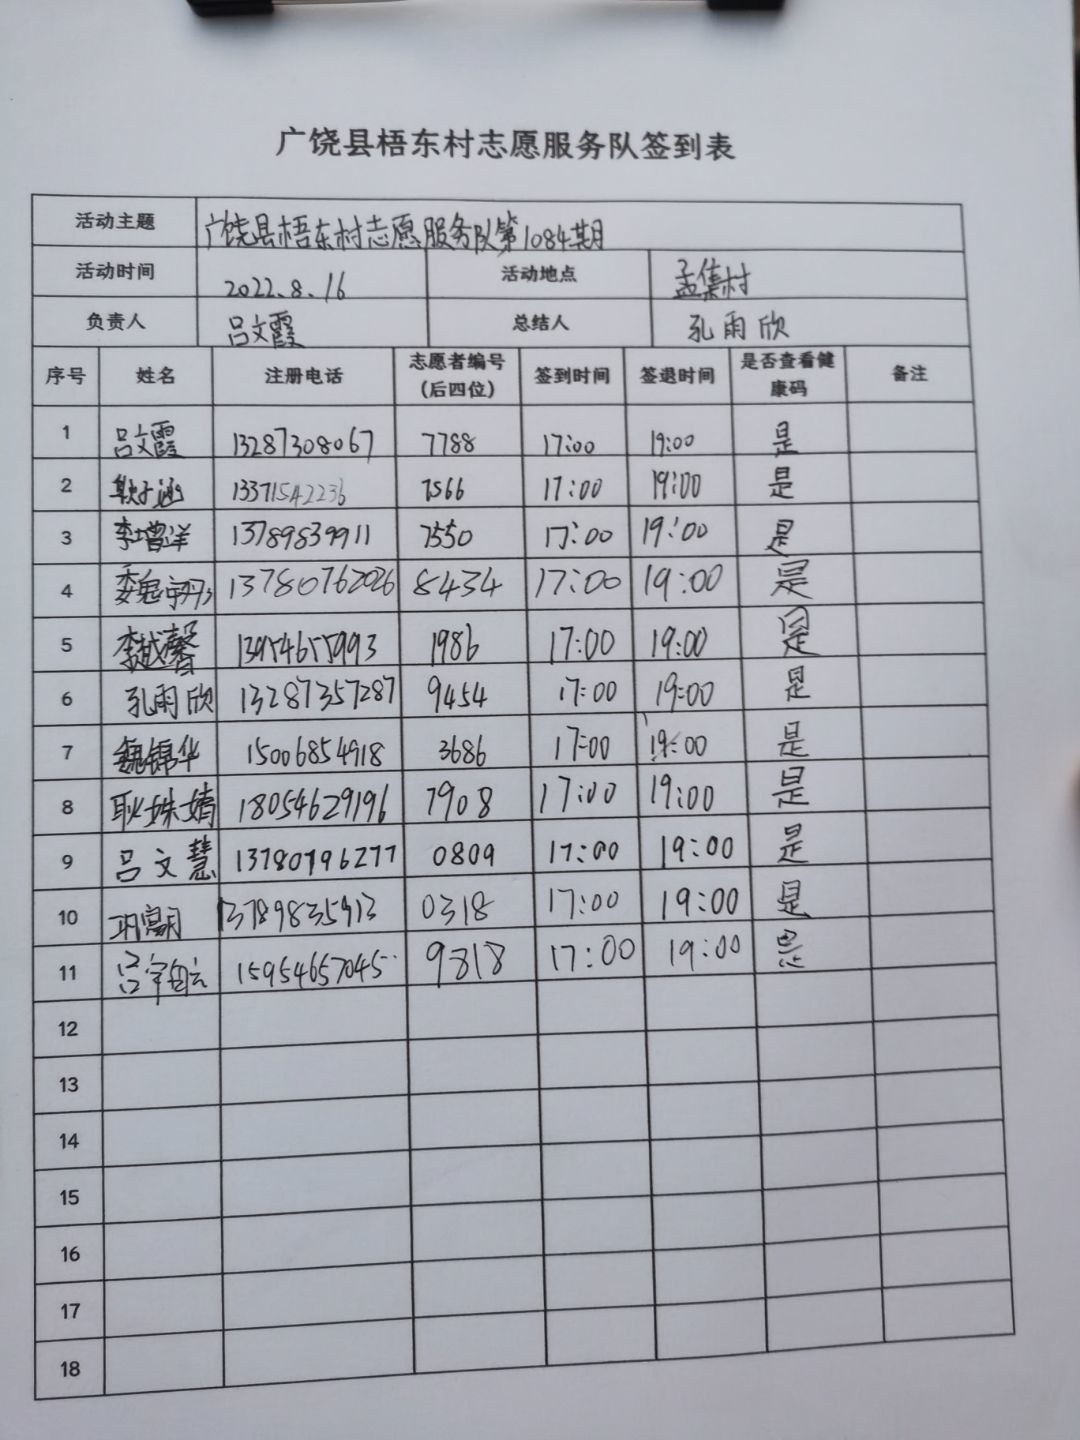 广饶县梧东村志愿服务队签到表
活动主题 广饶县梧东村志愿服务队第1084期
活动时间 2022.8.16 活动地点 孟集村
负责人 吕文霞 总结人 孔雨欣
序号 姓名 注册电话 志愿者编号（后四位） 签到时间 签退时间 是否查看健康码 备注
1 吕文霞 13287308067 7788 17:00 19:00 是
2 13371542236 7566 17:00 19:00 是
3 李增洋 13789839911 7550 17:00 19:00 是
4 13780762026 8434 17:00 19:00 是
5 李越馨 13954655993 1986 17:00 19:00 是
6 孔雨欣 13287357287 9454 17:00 19:00 是
7 魏锦华 15006854918 3686 17:00 19:00 是
8 耿姝婧 18054629196 7908 17:00 19:00 是
9 吕文慧 13780796277 0809 17:00 19:00 是
10 13789835913 0318 17:00 19:00 是
11 15954657045 9818 17:00 19:00 是
12
13
14
15
16
17
18